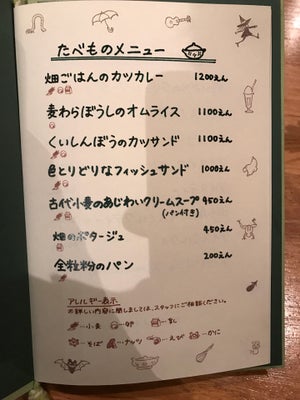 たべものメニュー
畑ごはんのカツカレー 1200えん
麦わらぼうしのオムライス 1100えん
くいしんぼうのカツサンド 1100えん
色とりどりなフィッシュサンド 1000えん
古代小麦のあじわいクリームスープ 950えん
(パン付き)
畑のポタージュ 450えん
全粒粉のパン 200えん
アレルギー表示
※詳しい内容に関しましては、スタッフにご相談ください。
…小麦 …卵 …乳
…そば …ナッツ …えび …かに